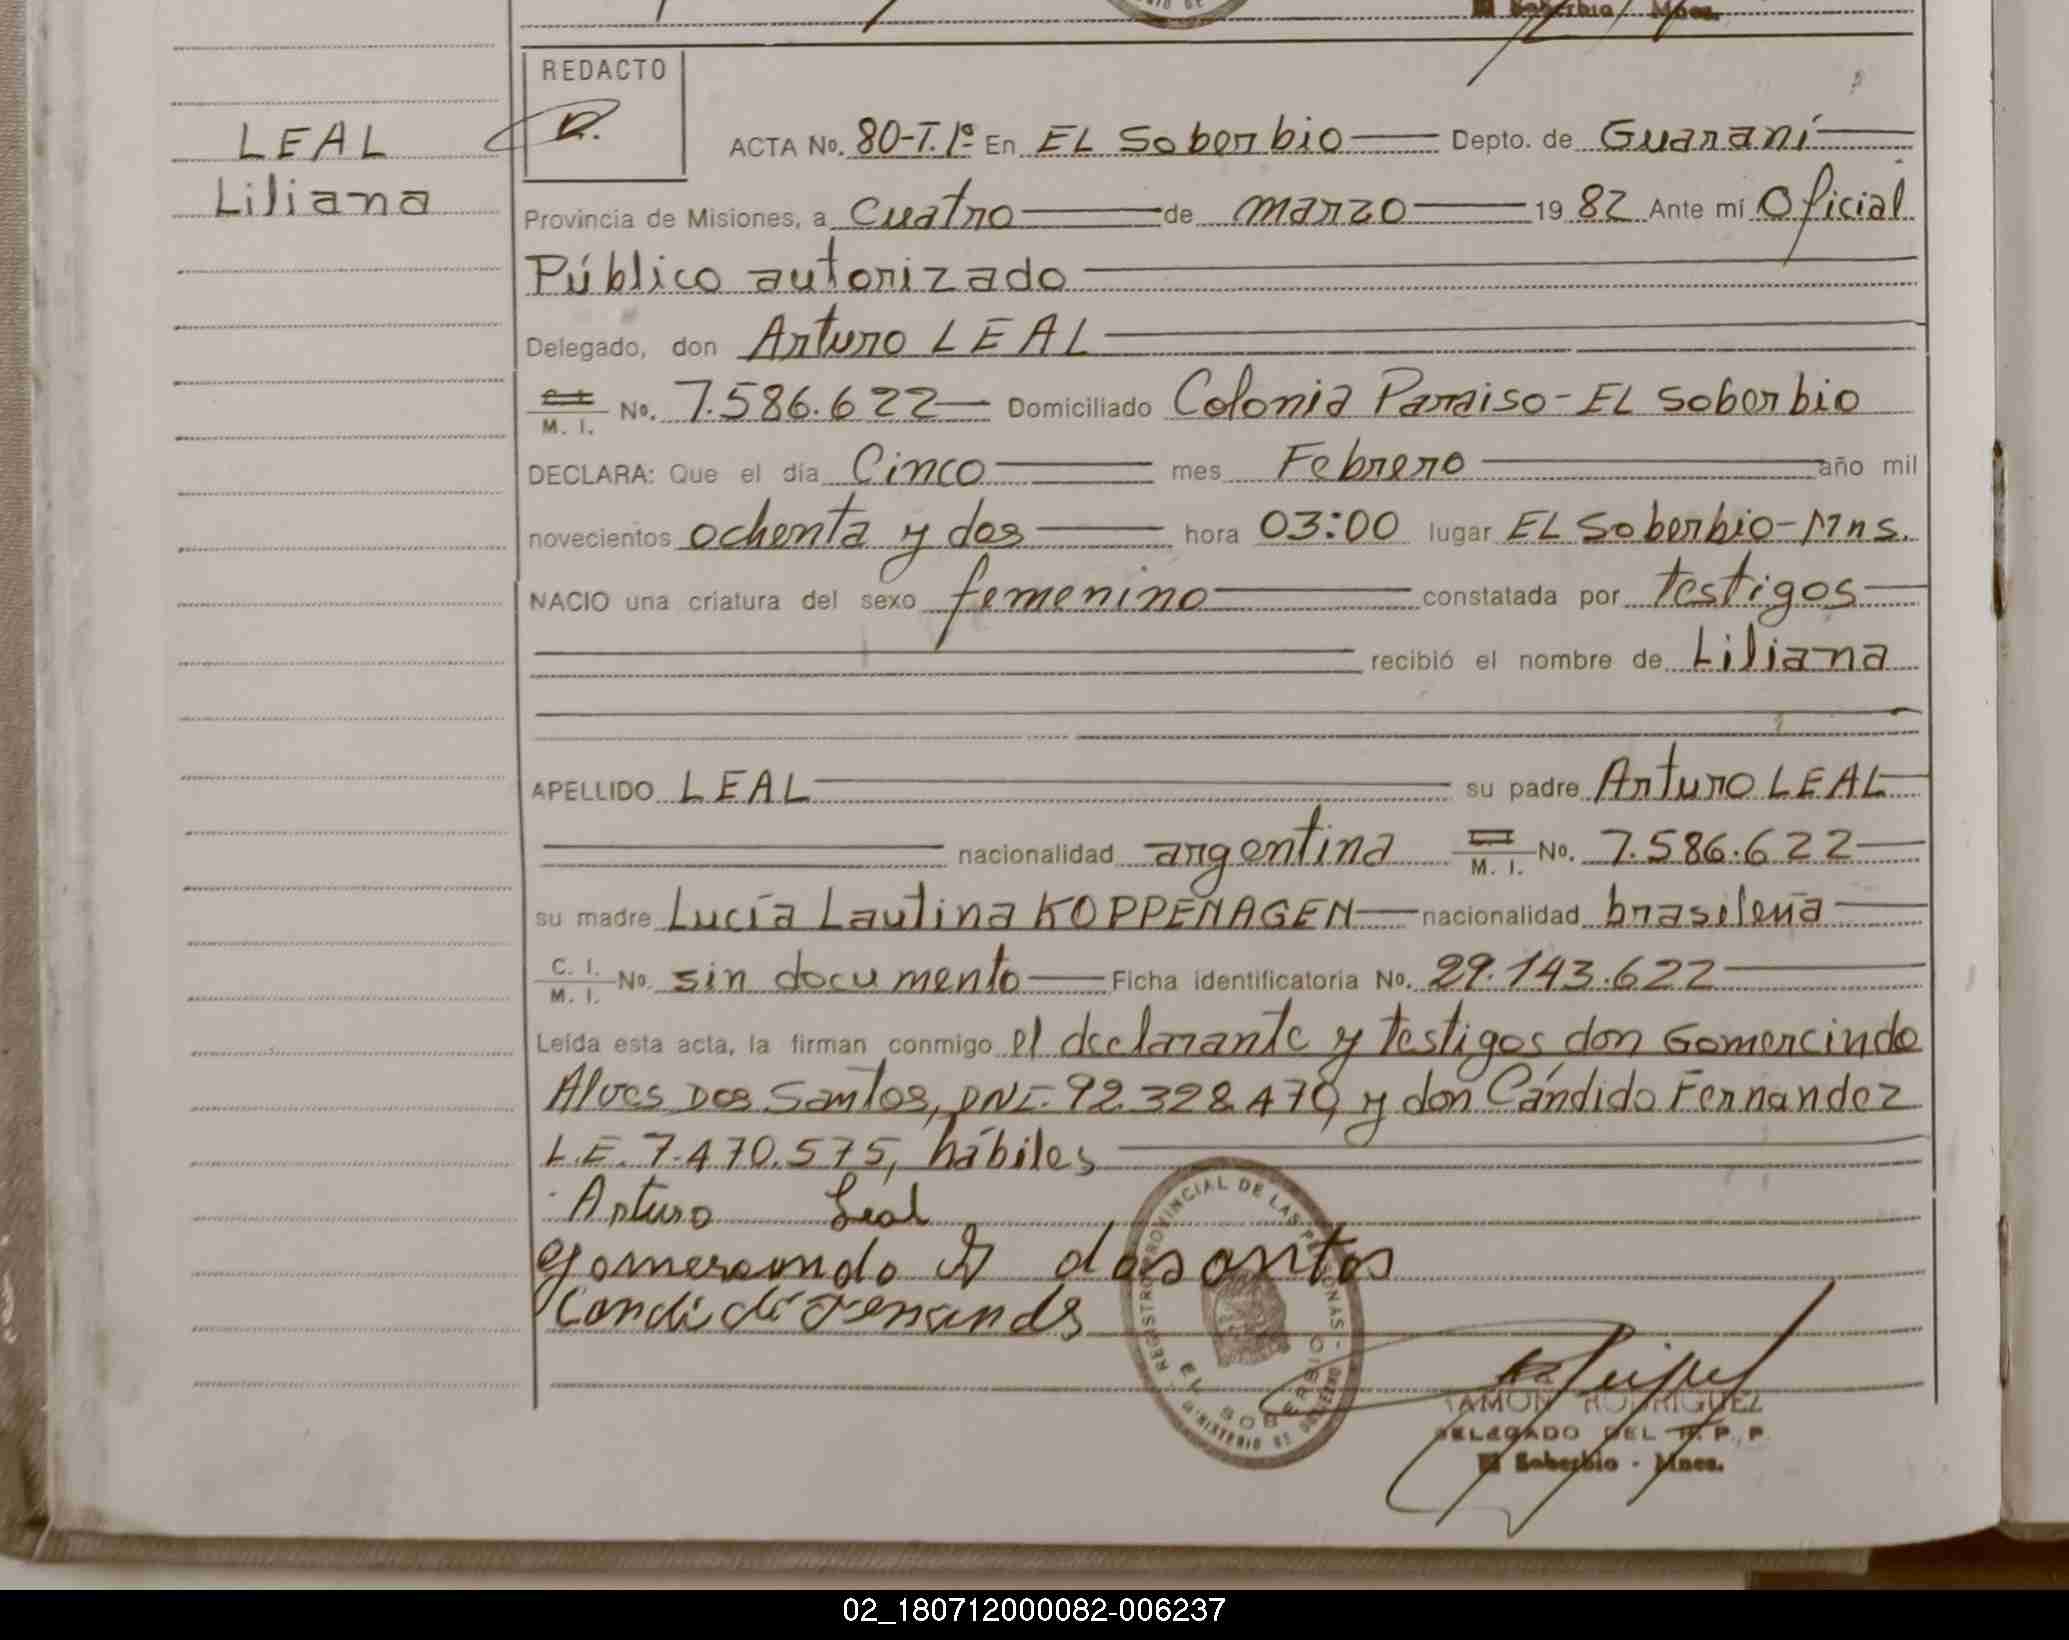 El Soberbio - Mnes.
REDACTO
LEAL
Liliana
ACTA No. 80-T.1º En EL Soberbio Depto. de Guaraní
Provincia de Misiones, a Cuatro de marzo 19 82 Ante mí Oficial
Público autorizado
Delegado, don Arturo LEAL
M. I. No. 7.586.622 Domiciliado Colonia Paraiso - EL Soberbio
DECLARA: Que el día Cinco mes Febrero año mil
novecientos ochenta y dos hora 03:00 lugar EL Soberbio-Mns.
NACIO una criatura del sexo femenino constatada por testigos
recibió el nombre de Liliana
APELLIDO LEAL su padre Arturo LEAL
nacionalidad argentina M. I. No. 7.586.622
su madre Lucía Lautina KOPPENAGEN nacionalidad brasileña
C. I. M. I. No. sin documento Ficha identificatoria No. 29.143.622
Leída esta acta, la firman conmigo el declarante y testigos don Gomercindo
Alves Dos Santos, DNI. 92.328.470, y don Cándido Fernandez
L.E. 7.470.575, hábiles
Arturo Leal
dosantos
REGISTRO PROVINCIAL DE LAS PERSONAS - MINISTERIO DE GOBIERNO
EL SOBERBIO
RAMON RODRIGUEZ
DELEGADO DEL R. P. P.
El Soberbio - Mnes.
02_180712000082-006237